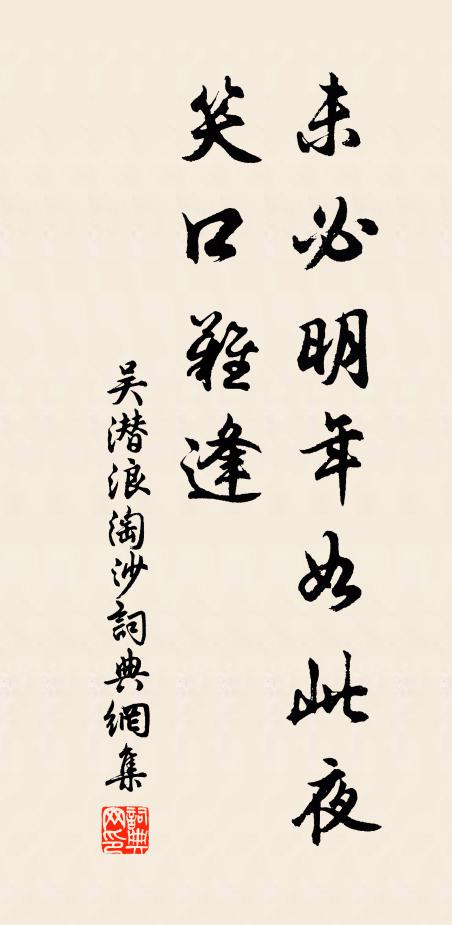 未必明年如此夜
笑口難逢
吴潜浪淘沙詞典網集
詞典网印